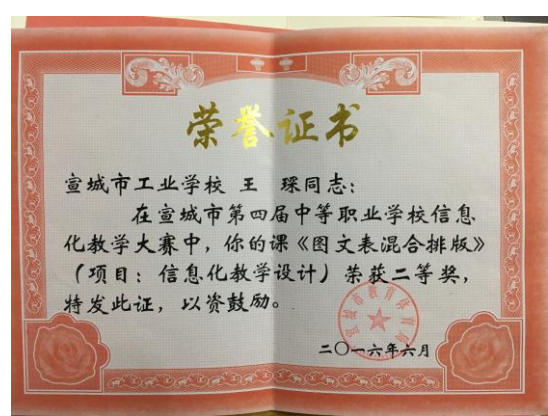 荣誉证书
宣城市工业学校 王 琛同志：
在宣城市第四届中等职业学校信息
化教学大赛中，你的课《图文表混合排版》
（项目：信息化教学设计）荣获二等奖，
特发此证，以资鼓励。
宣城市教育体育局
二〇一六年六月